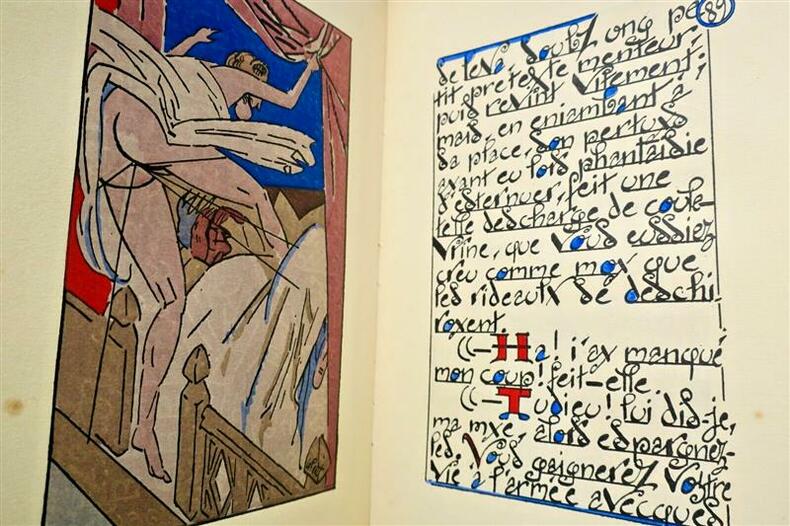 89
se leva, soubz ung pe
tit pretexte menteur,
puis revint vitement;
mais, en eniambant à
sa place, son pertuys
ayant eu lors phantaisie
d'esternuer, feit une
telle descharge de coule-
vrine, que vous eussiez
creu comme moy que
les rideaulx se deschi-
royent.
((—Ha! i'ay manqué
mon coup! feit-elle.
((—Tudieu! lui dis-je,
ma mye, alors espargnez-
les. Vous gaignerez vostre
vie à l'armée avecques